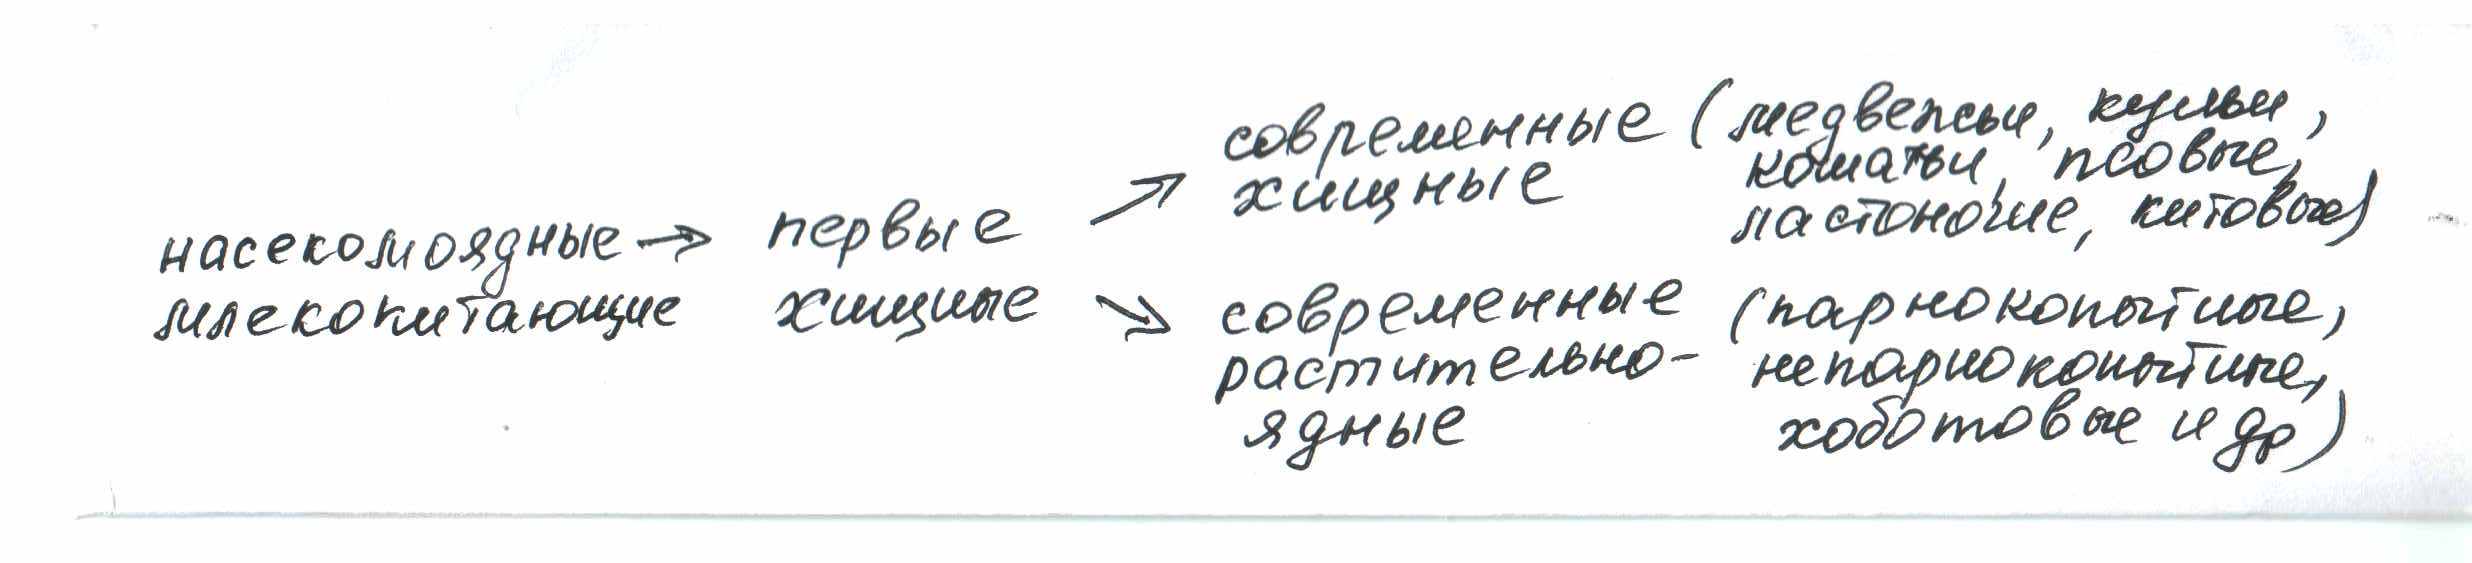 насекомоядные → первые
млекопитающие хищные
↗ современные (медвежьи, куньи,
хищные кошачьи, псовые,
ластоногие, китовые)
↘ современные (парнокопытные,
растительно- непарнокопытные,
ядные хоботовые и др)